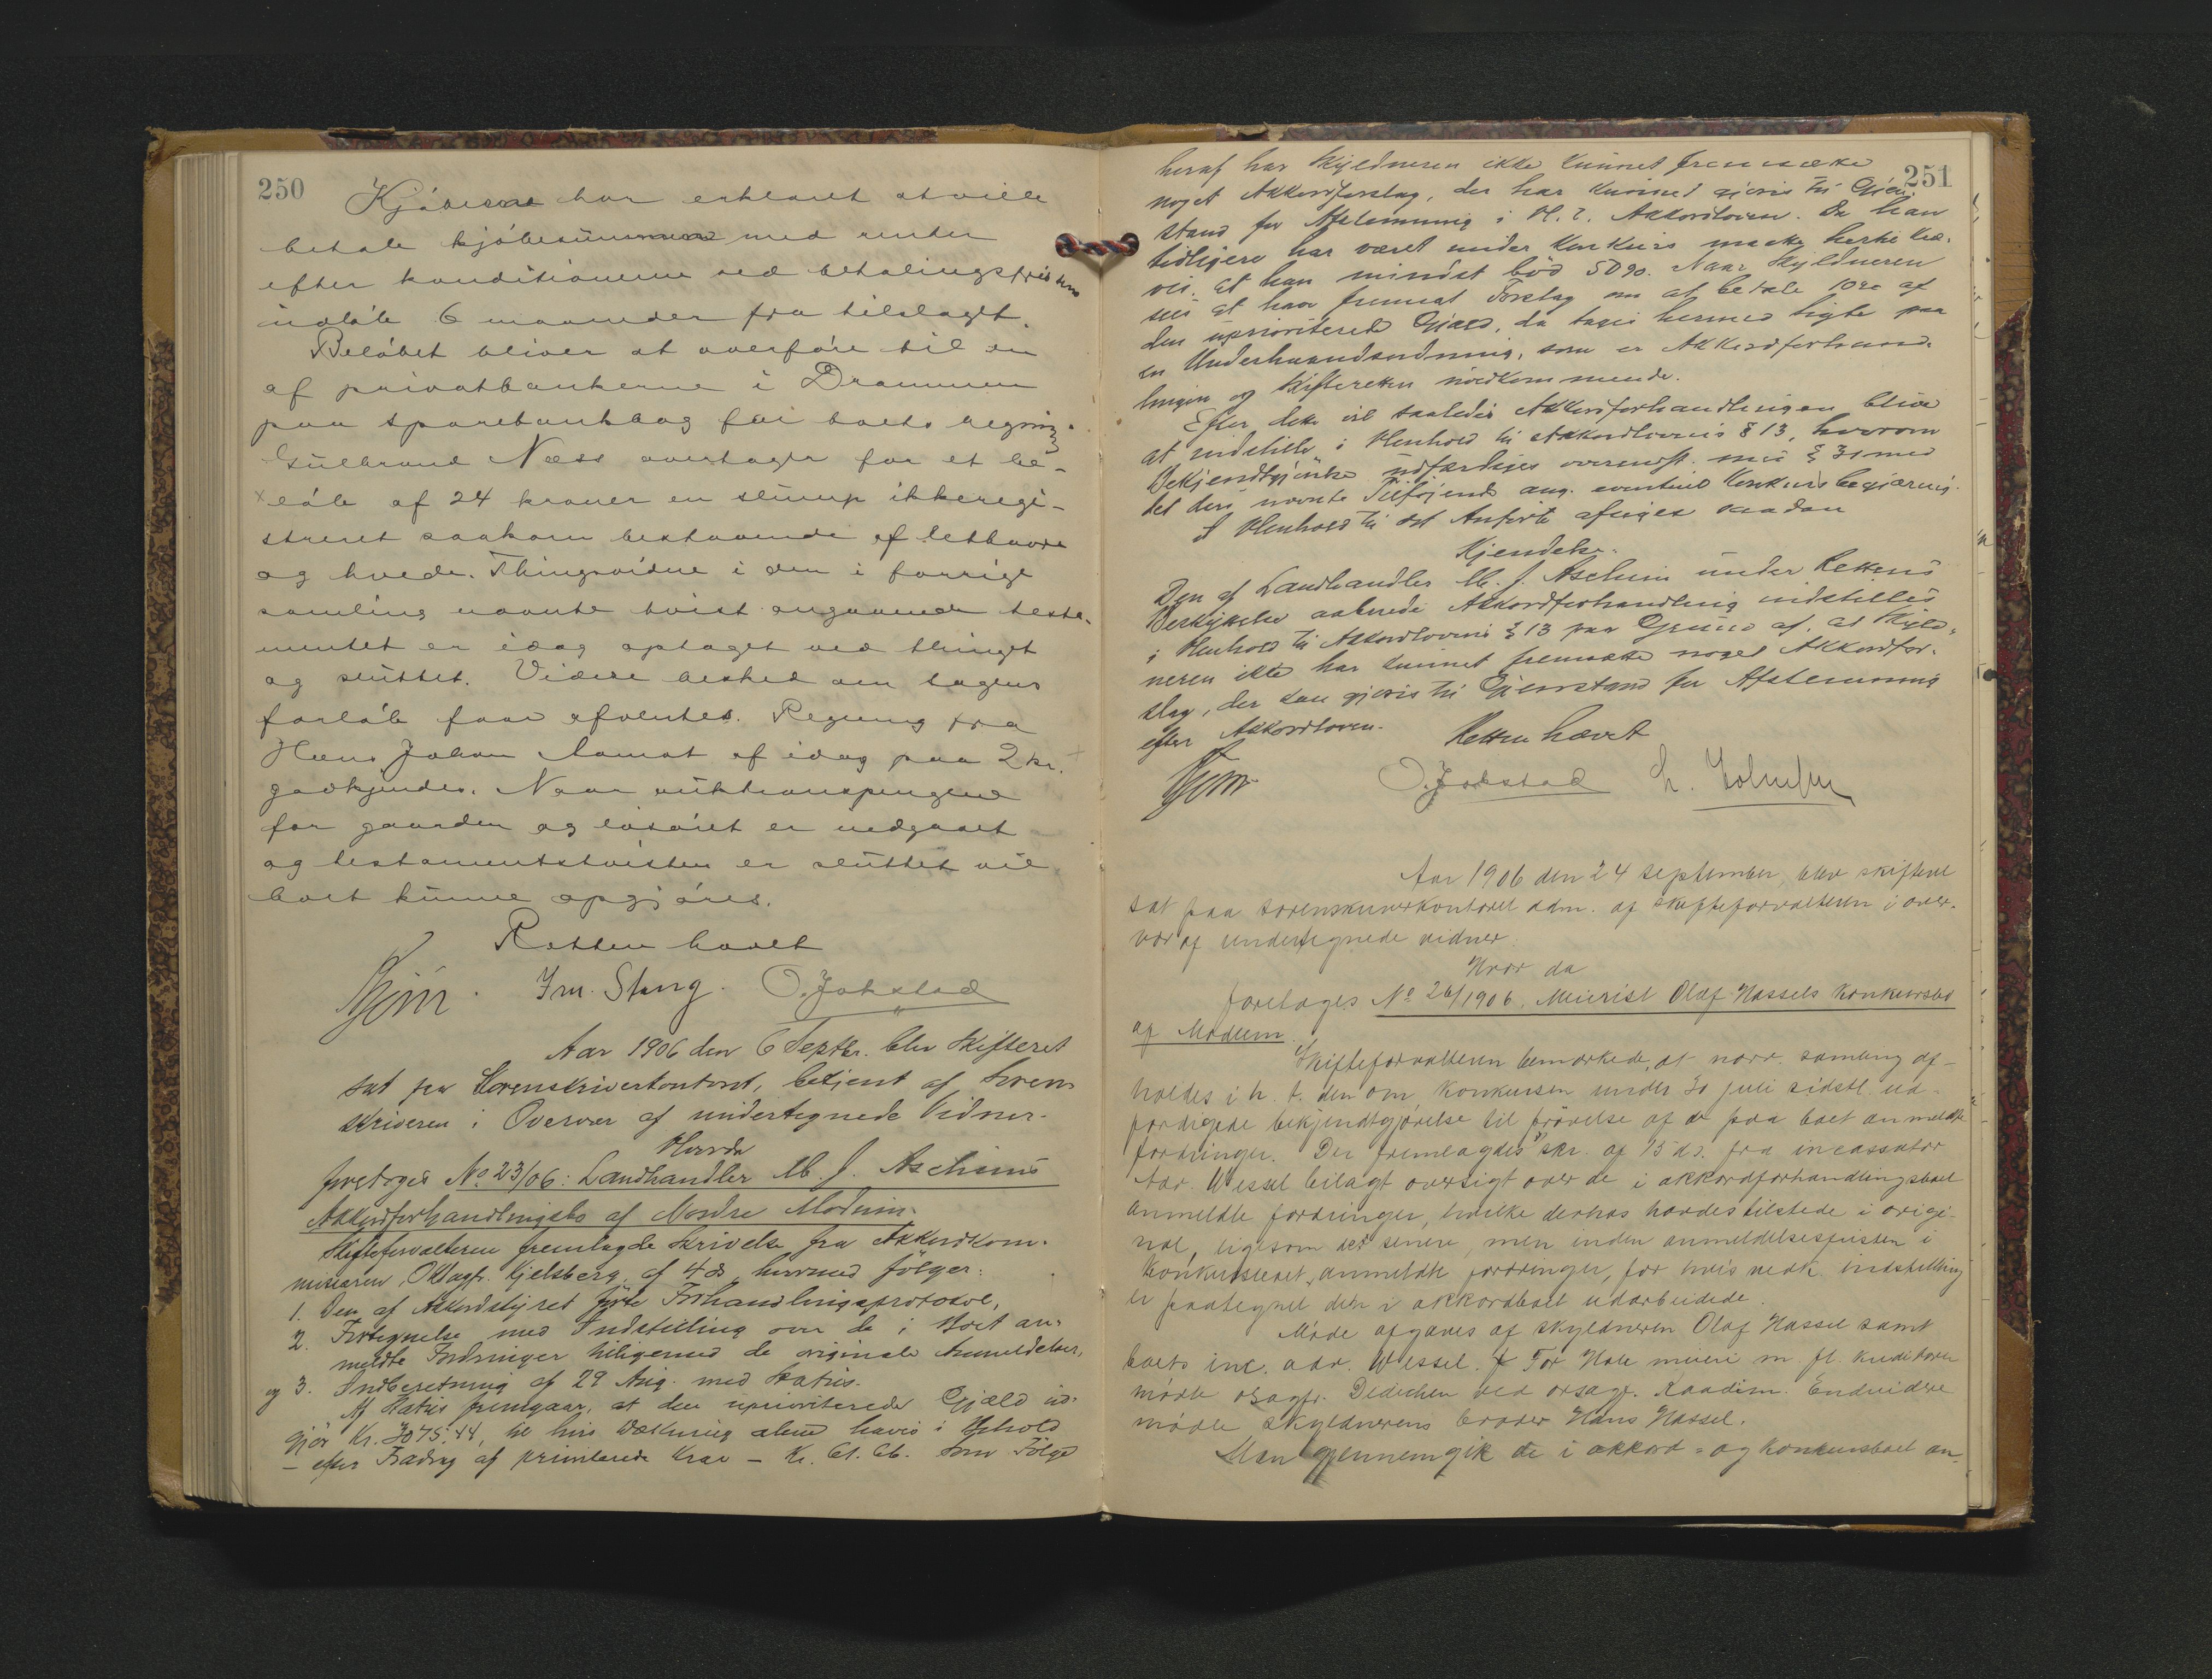 250
Kjøberne har erklæret at ville
betale kjøbesummen med renter
efter konditionerne ved betalingsfristens
udløb 6 maaneder fra tilslaget.
Beløbet bliver at overføre til en
af privatbankerne i Drammen
paa sparebankbog for boets regning.
Gulbrand Næss overtager for et be-
løb af 24 kroner en slump ikkeregi-
streret saakorn bestaaende af letbavre
og hvede. Thingsvidne i den i forrige
samling nævnte tvist angaaende testa-
mentet er idag optaget ved thinget
og sluttet. Videre besked om sagens
forløb faar afventes. Regning fra
Hans Johan Aamot af idag paa 2 kr.
godkjendes. Naar auktionspengene
for gaarden og løsøret er indgaaet
og testamentstvisten er sluttet vil
boet kunne opgjøres.
Retten hævet
Fr. Stang. O. Jokstad
Aar 1906 den 6 Septbr. blev Skifteret
sat paa Sorenskriverkontoret, betjent af Soren-
skriveren i Overvær af undertegnede Vidner.
Hvorda
foretoges No 23/06: Landhandler M. J. Aschims
Akkordforhandlingsbo af Nordre Modum.
Skifteforvalteren fremlagde Skrivelse fra Akkordkom-
missæren, O.Sagf. Kjelsberg af 4 ds, hvormed følger:
1. Den af Akkordstyret førte Forhandlingsprotokol,
2. Fortegnelse med Indstilling over de i Boet an-
meldte Fordringer tilligemed de originale Anmeldelser,
og 3. Indberetning af 29 Aug. med Status.
Af Status fremgaar, at den uprioriterede Gjæld ud-
gjør Kr. 3075.44, til hvis Dækning alene haves i Behold
– efter Fradrag af privilerede Krav – Kr. 61.66. Som Følge
251
heraf har Skyldneren ikke kunnet fremsætte
noget Akkordforslag, der har kunnet gjøres til Gjen-
stand for Afstemning i H. t. Akkordloven. Da han
tidligere har været under Konkurs maatte hertil kræ-
ves, at han mindst bød 50 %. Naar Skyldneren
sees at have fremsat Forslag om at betale 10 % af
den uprioriterede Gjæld, da tages hermed sigte paa
en Underhaandsordning, som er Akkordforhand-
lingen og Skifteretten uvedkommende.
Efter dette vil saaledes Akkordforhandlingen blive
at indstille i Henhold til Akkordlovens § 13, hvorom
Bekjendtgjørelse udfærdiges overensst. med § 31 med
det deri nævnte Tilføjende ang. eventuel Konkursbegjæring.
I Henhold til det Anførte afsiges saadan
Kjendelse.
Den af Landhandler M. J. Aschim under Rettens
Beskyttelse aabnede Akkordforhandling indstilles
i Henhold til Akkordlovens § 13 paa Grund af, at Skyld-
neren ikke har kunnet fremsætte noget Akkordfor-
slag, der kan gjøres til Gjenstand for Afstemning
efter Akkordloven.
Retten hævet
O. Jokstad
Aar 1906 den 24 september, blev skifteret
sat paa sorenskriverkontoret adm. af skifteforvalteren i over-
vær af undertegnede vidner.
Hvor da
foretoges No 26/1906. Meierist Olaf Hassels konkursbo
af Modum.
Skifteforvalteren bemærkede, at nærv. samling af-
holdes i h. t. den om konkursen under 30 juli sidstl. ud-
færdigede bekjendtgjørelse til prøvelse af de paa boet anmeldte
fordringer. Der fremlagdes skr. af 15 ds. fra incassator
Adv. Wessel bilagt oversigt over de i akkordforhandlingsboet
anmeldte fordringer, hvilke derhos havdes tilstede i origi-
nal, ligesom de senere, men inden anmeldelsesfristen i
konkursboet anmeldte fordringer, for hvis vedk. indstilling
er paategnet den i akkordboet udarbeidede.
Møde afgaves af skyldneren Olaf Hassel samt
boets inc. adv. Wessel. For Hole meieri m. fl. kreditorer
mødte osagfr. Dedichen ved osagf. Raadim. Endvidere
mødte skyldnerens broder Hans Hassel.
Man gjennemgik de i akkord- og konkursboet an-